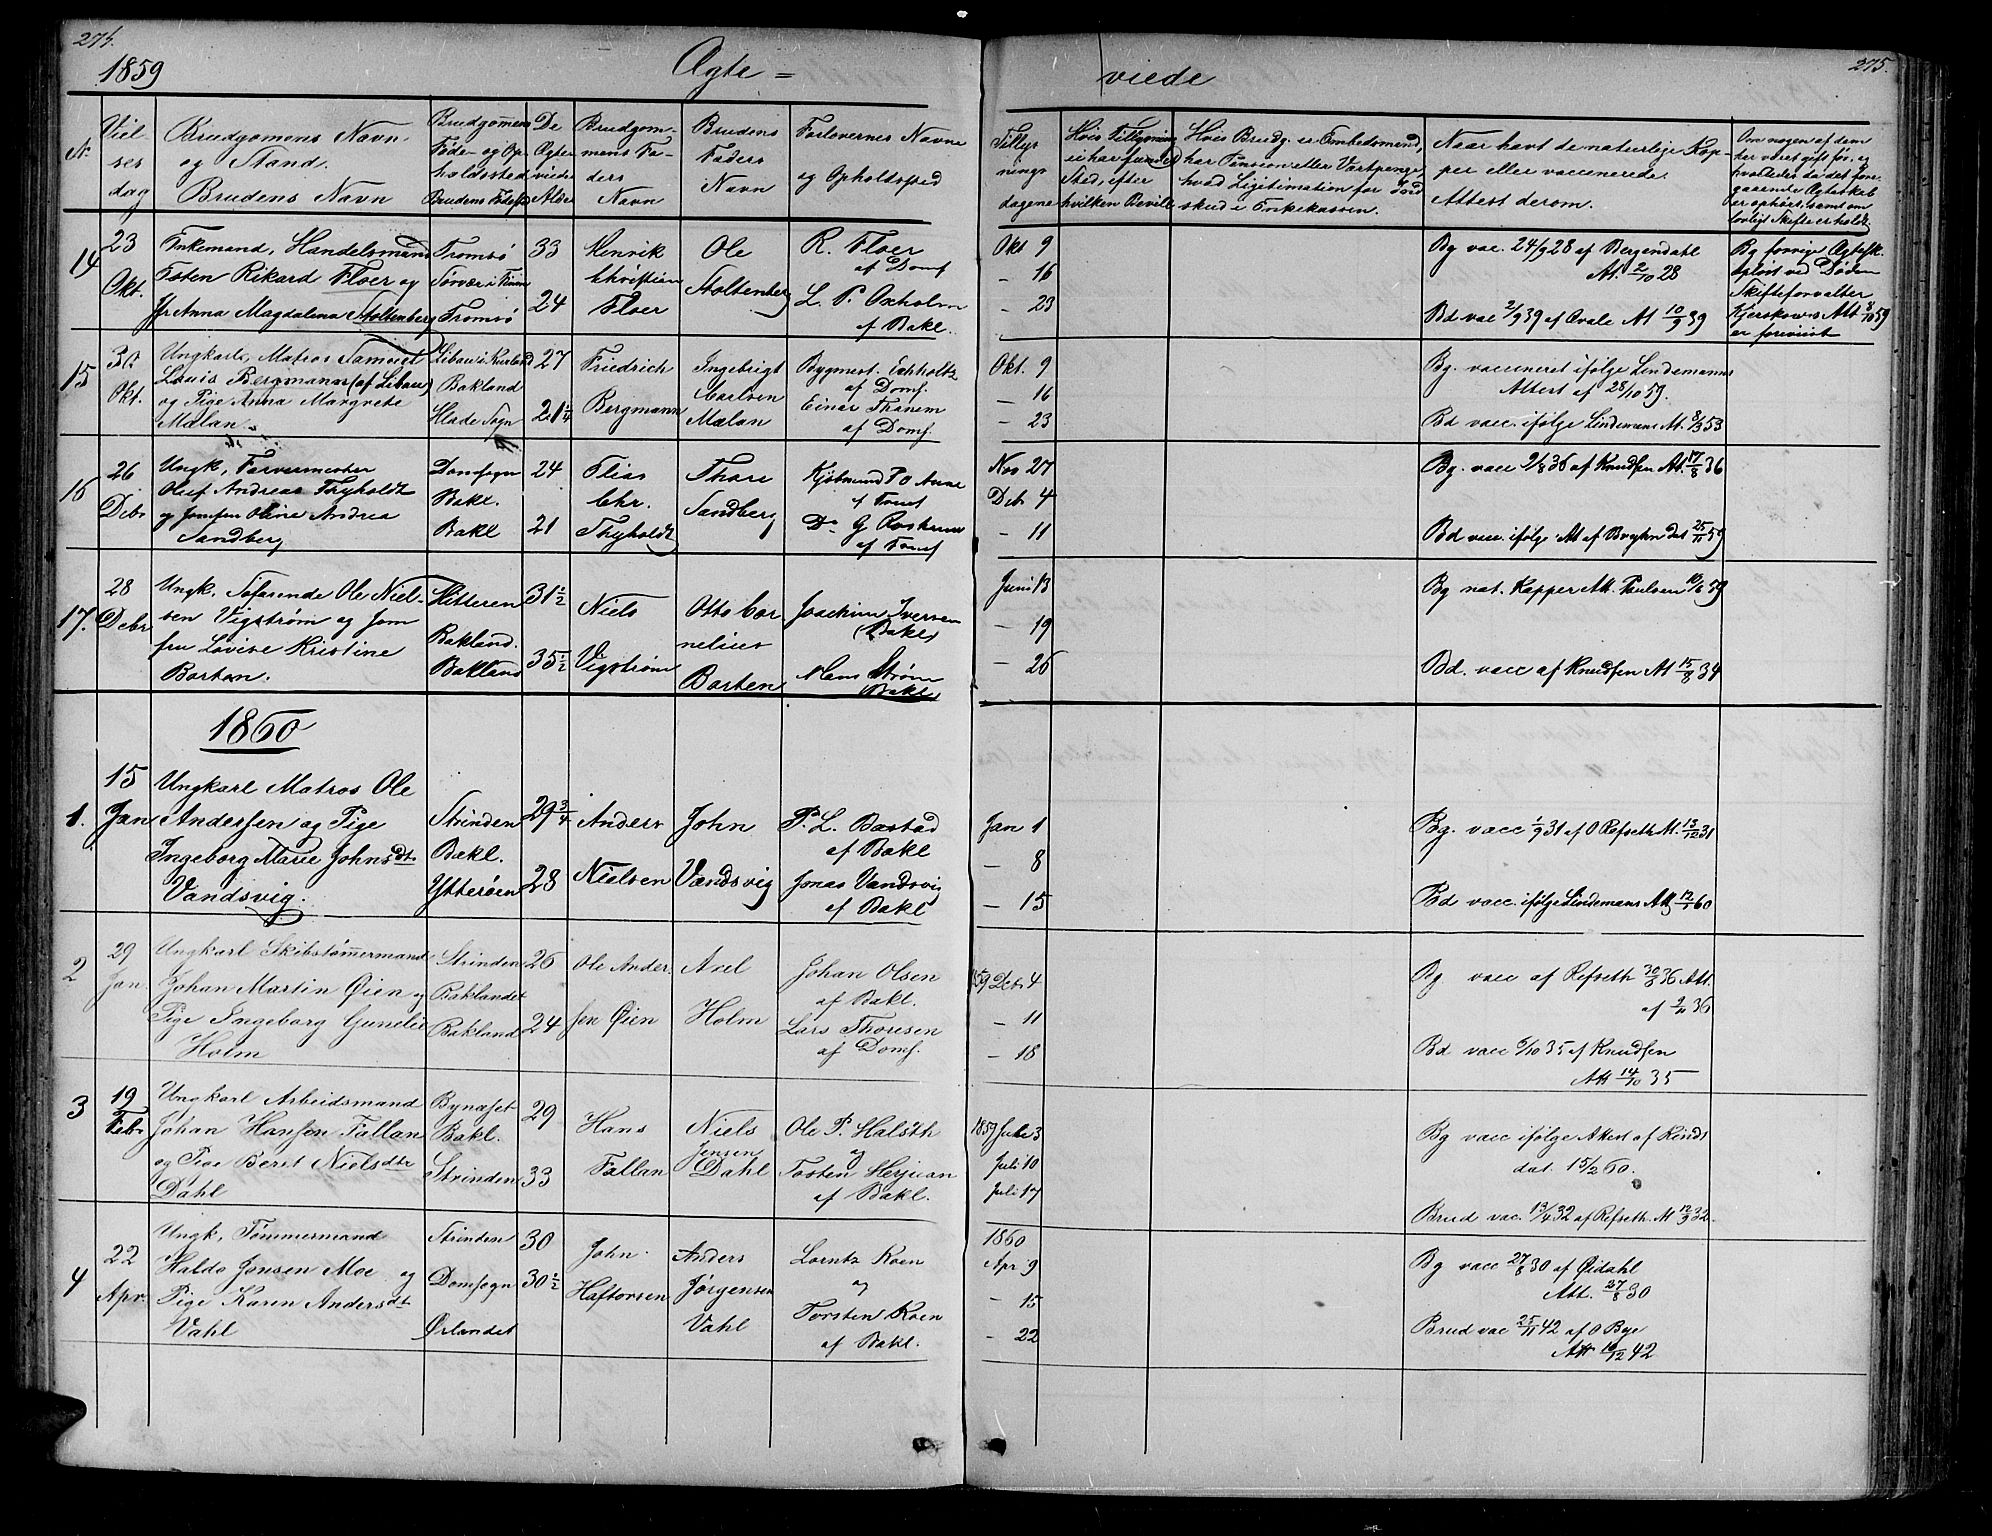 274.
1859
Ægte =
viede
275.
N.
Viel-
ses
dag
Brudgomens Navn
og Stand.
Brudens Navn
Brudgomens
Føde- og Op-
holdssted
Brudens Fødested
De
Ægte-
viedes
Alder
Brudgom-
mens Fa-
ders
Navn
Brudens
Faders
Navn
Forlovernes Navne
og Opholdssted
Tillys
nings
dagene
Hvis Tillysning
ei har fundet
Sted, efter
hvilken Bevill.
Hvis Brudg. er Embedsmand,
har Pension eller Vartpenge,
hvad Legitimation for Ind
skud i Enkekassen.
Naar havt de naturlige Kop-
per eller vaccinerede
Attest derom.
Om nogen af dem
har været gift før, og
hvorledes da det fore-
gaaende Ægteskab
er ophørt, samt om
lovligt Skifte er holdt
14
23
Okt.
Enkemand, Handelsmand
Tosten Rikard Floer og
Jfr Anna Magdalena Stoltenberg
Tromsø
Sørvær i Finm
Tromsø
33
24
Henrik
Christian
Floer
Ole
Stoltenberg
R. Floer
af Domf
L. P. Oxholm
af Bakl.
Okt 9
- 16
- 23
Bg vac. 24/9 28 af Bergendahl
At. 2/10 28
Bd vac 2/9 39 af Qvale At 10/9 39
Bg forrige Ægtesk.
opløst ved Døden
Skifteforvalter
Kjerskows Att 8/10 59
er foreviist
15
30
Okt.
Ungkarl, Matros Samuel
Louis Bergmann (af Libau)
og Pige Anna Margrete
Malan.
Libau i Kurland
Bakland
Hlade Sogn
27
21 1/4
Friedrich
Bergmann
Ingebrigt
Carlsen
Malan
Bygmest. Echholtz
af Domf.
Einar Thanem
af Domf.
Okt. 9
- 16
- 23
Bg. vaccineret ifølge Lindemanns
Attest af 28/10 59.
Bd vacc. ifølge Lindemans At. 8/3 53
16
26
Debr
Ungk, Farvermester
Oluf Andreas Thyholdt
og Jomfru Oline Andrea
Sandberg
Domsogn
Bakl.
Bakl
24
21
Elias
Chr.
Thyholdt
Thore
Sandberg
Kjøbmand P O Aune
af Domf
Do G
af Domf
Nov 27
Debr 4
- 11
Bg. vacc 9/8 36 af Knudsen At. 17/8 36
Bd vacc. ifølge At af Bryhn dat 25/11 59
17.
28
Debr
Ungk. Søfarende Ole Niel-
sen Vigstrøm og Jom
fru Lovise Kristine
Barten.
Hitteren
Bakland.
Bakland
31 1/2
35 1/2
Niels
Vigstrøm
Otto Cor
nelius
Barten
Joachim Iversen
(Bakl)
Hans Strøm
(Bakl)
Juni 13
- 19
- 26
Bg nat. Kopper Att. Paulsen 10/6 59
Bd. vacc af Knudsen At 15/8 34
1860
1.
15
Jan
Ungkarl Matros Ole
Andersen og Pige
Ingeborg Marie Johnsdt.
Vandsvig.
Strinden
Bakl.
Ytterøen
29 3/4
28
Anders
Nielsen
John
Vandsvig
P. L. Bastad
af Bakl
Jonas Vandsvig
af Bakl
Jan 1
- 8
- 15
Bg. vacc 1/9 31 af O Refseth At. 13/12 31
Bd vacc. ifølge Lindemans Att 12/1 60
2
29
Jan.
Ungkarl Skibstømermand
Johan Martin Øien og
Pige Ingeborg Gunelie
Holm
Strinden
Baklandet
Bakland
26
24
Ole Ander-
sen Øien
Axel
Holm
Johan Olsen
af Bakl.
Lars Thoresen
af Domf.
1859 Debr 4
- 11
- 18
Bg. vacc af Refseth 30/8 36 Att.
af 2/11 36
Bd vacc 6/10 35 af Knudsen
Att 14/10 35
3
19
Febr
Ungkarl Arbeidsmand
Johan Hansen Fallan
og Pige Beret Nielsdtr
Dahl
Bynæset
Bakl.
Strinden
29
33
Hans
Fallan
Niels
Jensen
Dahl
Ole P. Halsth
og
Tosten Hesjuan
af Bakl.
1859 Juli 3
Juli 10
Juli 17
Bg vacc ifølge Attest af Rinds
dat. 15/2 60.
Brud vac. 13/4 32 af Refseth At 12/9 32.
4
22
Apr.
Ungk, Tømmermand
Haldo Jonsen Moe og
Pige Karen Andersdt
Vahl
Strinden
Domsogn
Ørlandet
30
30 1/2
John
Haftorsen
Anders
Jørgensen
Vahl
Lorntz Koen
og
Torsten Koen
af Bakl.
1860
Apr 9
- 15
- 22
Bg vacc 27/8 30 af Øidahl
Att. 27/8 30
Brud vac 25/11 42 af O Bye
Att 10/12 42